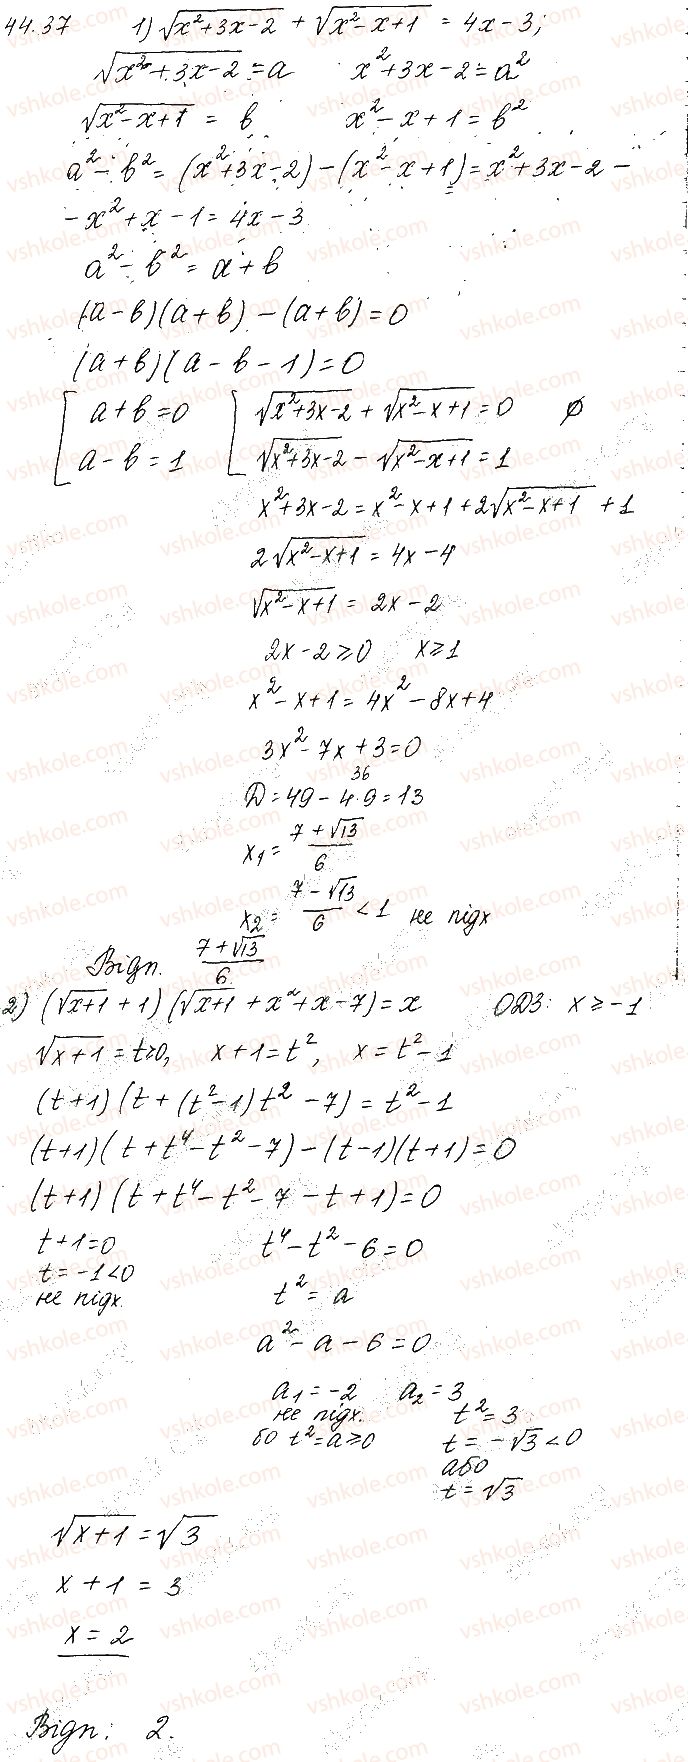 44.37 1) √(x²+3x-2) + √(x²-x+1) = 4x-3;
√(x²+3x-2) = a x²+3x-2=a²
√(x²-x+1) = b x²-x+1=b²
a²-b²=(x²+3x-2)-(x²-x+1)=x²+3x-2-
-x²+x-1=4x-3
a²-b²=a+b
(a-b)(a+b)-(a+b)=0
(a+b)(a-b-1)=0
[ a+b=0 [ √(x²+3x-2) + √(x²-x+1) = 0 ∅
a-b=1 √(x²+3x-2) - √(x²-x+1) = 1
x²+3x-2=x²-x+1+2√(x²-x+1) +1
2√(x²-x+1) = 4x-4
√(x²-x+1) = 2x-2
2x-2≥0 x≥1
x²-x+1=4x²-8x+4
3x²-7x+3=0
36
D=49-4·9=13
x₁= (7+√13)/6
x₂= (7-√13)/6 <1 не підх
Відп. (7+√13)/6
2) (√(x+1) +1)(√(x+1) +x²+x-7)=x ОДЗ: x≥-1
√(x+1) = t≥0, x+1=t², x=t²-1
(t+1)(t+(t²-1)t²-7)=t²-1
(t+1)(t+t⁴-t²-7)-(t-1)(t+1)=0
(t+1)(t+t⁴-t²-7-t+1)=0
t+1=0 t⁴-t²-6=0
t=-1<0
не підх. t²=a
a²-a-6=0
a₁=-2 a₂=3
не підх. t²=3
бо t²=a≥0 t=-√3<0
або
t=√3
√(x+1) = √3
x+1=3
x=2
Відп: 2.